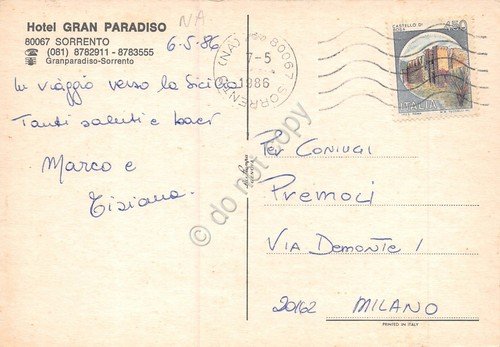 Hotel GRAN PARADISO
80067 SORRENTO
☎ (081) 8782911 - 8783555
Granparadiso-Sorrento
NA
6-5-86
In viaggio verso la Sicilia
Tanti saluti e baci
Marco e
Tiziana.
80067 SORRENTO (NA)
7-5
1986
CASTELLO DI
450
ITALIA
Per Coniugi
Premoci
Via Demonte 1
20162 MILANO
PRINTED IN ITALY
© do not copy